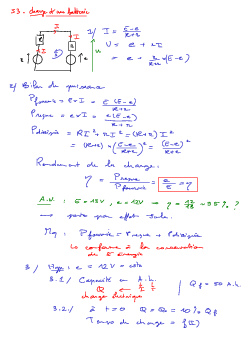 S3 - charge d'une batterie
1/ I = E-e / R+r
U = e + rI
= e + r/R+r × (E-e)
2/ Bilan de puissance
Pfournie = E×I = E (E-e) / R+r
Preçue = e×I = e(E-e) / R+r
Pdissipée = RI² + rI² = (R+r) I²
= (R+r) × (E-e / R+r)² = (E-e)² / R+r
Rendement de la charge.
η = Preçue / Pfournie = e / E = η
A.N : E = 13V, e = 12V → η = 12/13
→ perte par effet Joule.
Rq : Pfournie = Preçue + Pdissipée
La conforme à la conservation
de l'énergie
3/ Hyp : e = 12V = cste
3.1/ Capacité en A.h.
Q
charge électrique
Qf = 50 A.h
3.2/ à t=0 Q = Q0 = 10% Qf
Temps de charge =